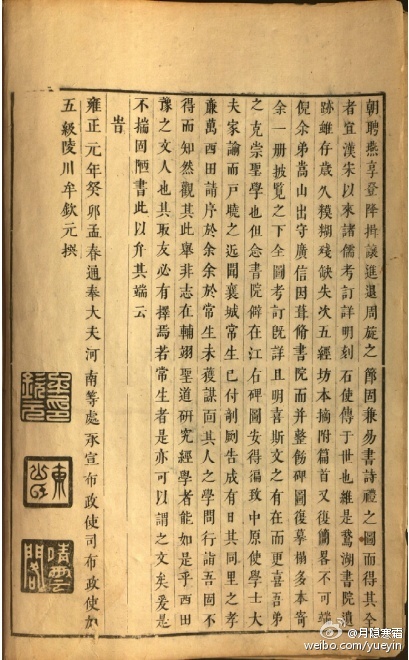 朝聘燕享登降揖讓進退周旋之節固兼易書詩禮之圖而得其全
者宜漢宋以來諸儒考訂詳明刻石使傳于世也維是鵞湖書院遺
跡雖存歲久糢糊殘缺失次五經坊本摘附篇首又復簡畧不可端
倪余弟嵩山出守廣信因葺脩書院而并整飭碑圖復摹搨多本寄
余一册披覽之下全圖考訂既詳且明喜斯文之有在而更喜吾弟
之克崇聖學也但念書院僻在江右碑圖安得徧致中原使學士大
夫家諭而戶曉之近聞襄城常生已付剞劂告成有日其同里之孝
廉萬西田請序於余余於常生未獲謀面其人之學問行詣吾固不
得而知然觀其此舉非志在輔翊聖道研究經學者能如是乎西田
豫之文人也其取友必有擇焉若常生者是亦可以謂之文矣爰是
不揣固陋書此以弁其端云
旹
雍正元年癸卯孟春通奉大夫河南等處承宣布政使司布政使加
五級陵川牟欽元撰
牟印欽元
東山
晴雲閣
@月隐寒霜
weibo.com/yueyin